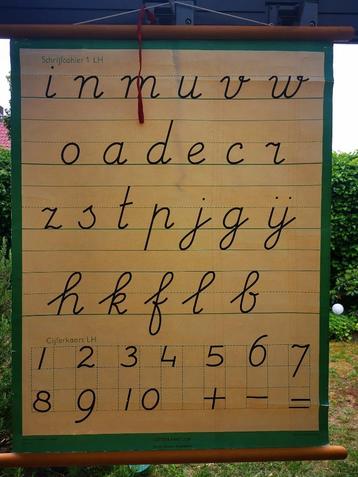 Schrijfcahier 1 LH
i n m u v w
o a d e c r
z s t p j g ij
h k f l b
Cijferkaart LH
1 2 3 4 5 6 7
8 9 10 + − =